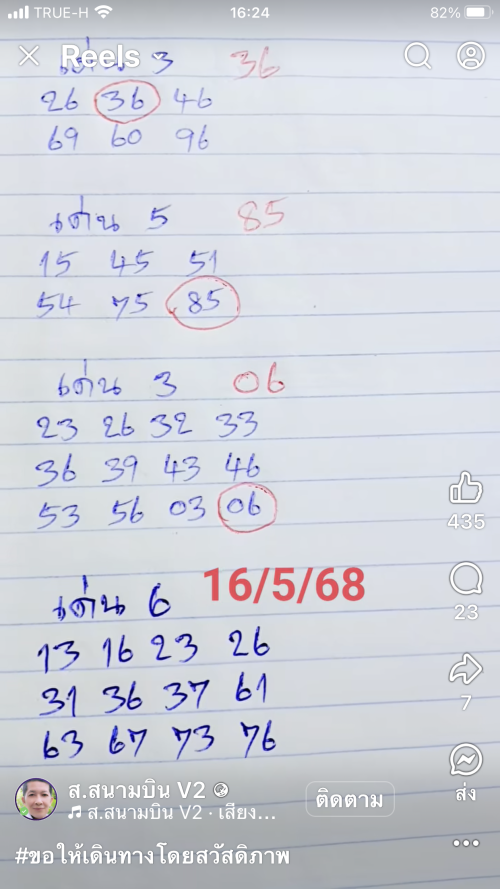 TRUE-H 16:24 82%
Reels
เด่น 3 36
26 36 46
69 60 96
เด่น 5 85
15 45 51
54 75 85
เด่น 3 06
23 26 32 33
36 39 43 46
53 56 03 06
เด่น 6 16/5/68
13 16 23 26
31 36 37 61
63 67 73 76
435
23
7
ส่ง
ส.สนามบิน V2
ส.สนามบิน V2 · เสียง...
ติดตาม
#ขอให้เดินทางโดยสวัสดิภาพ